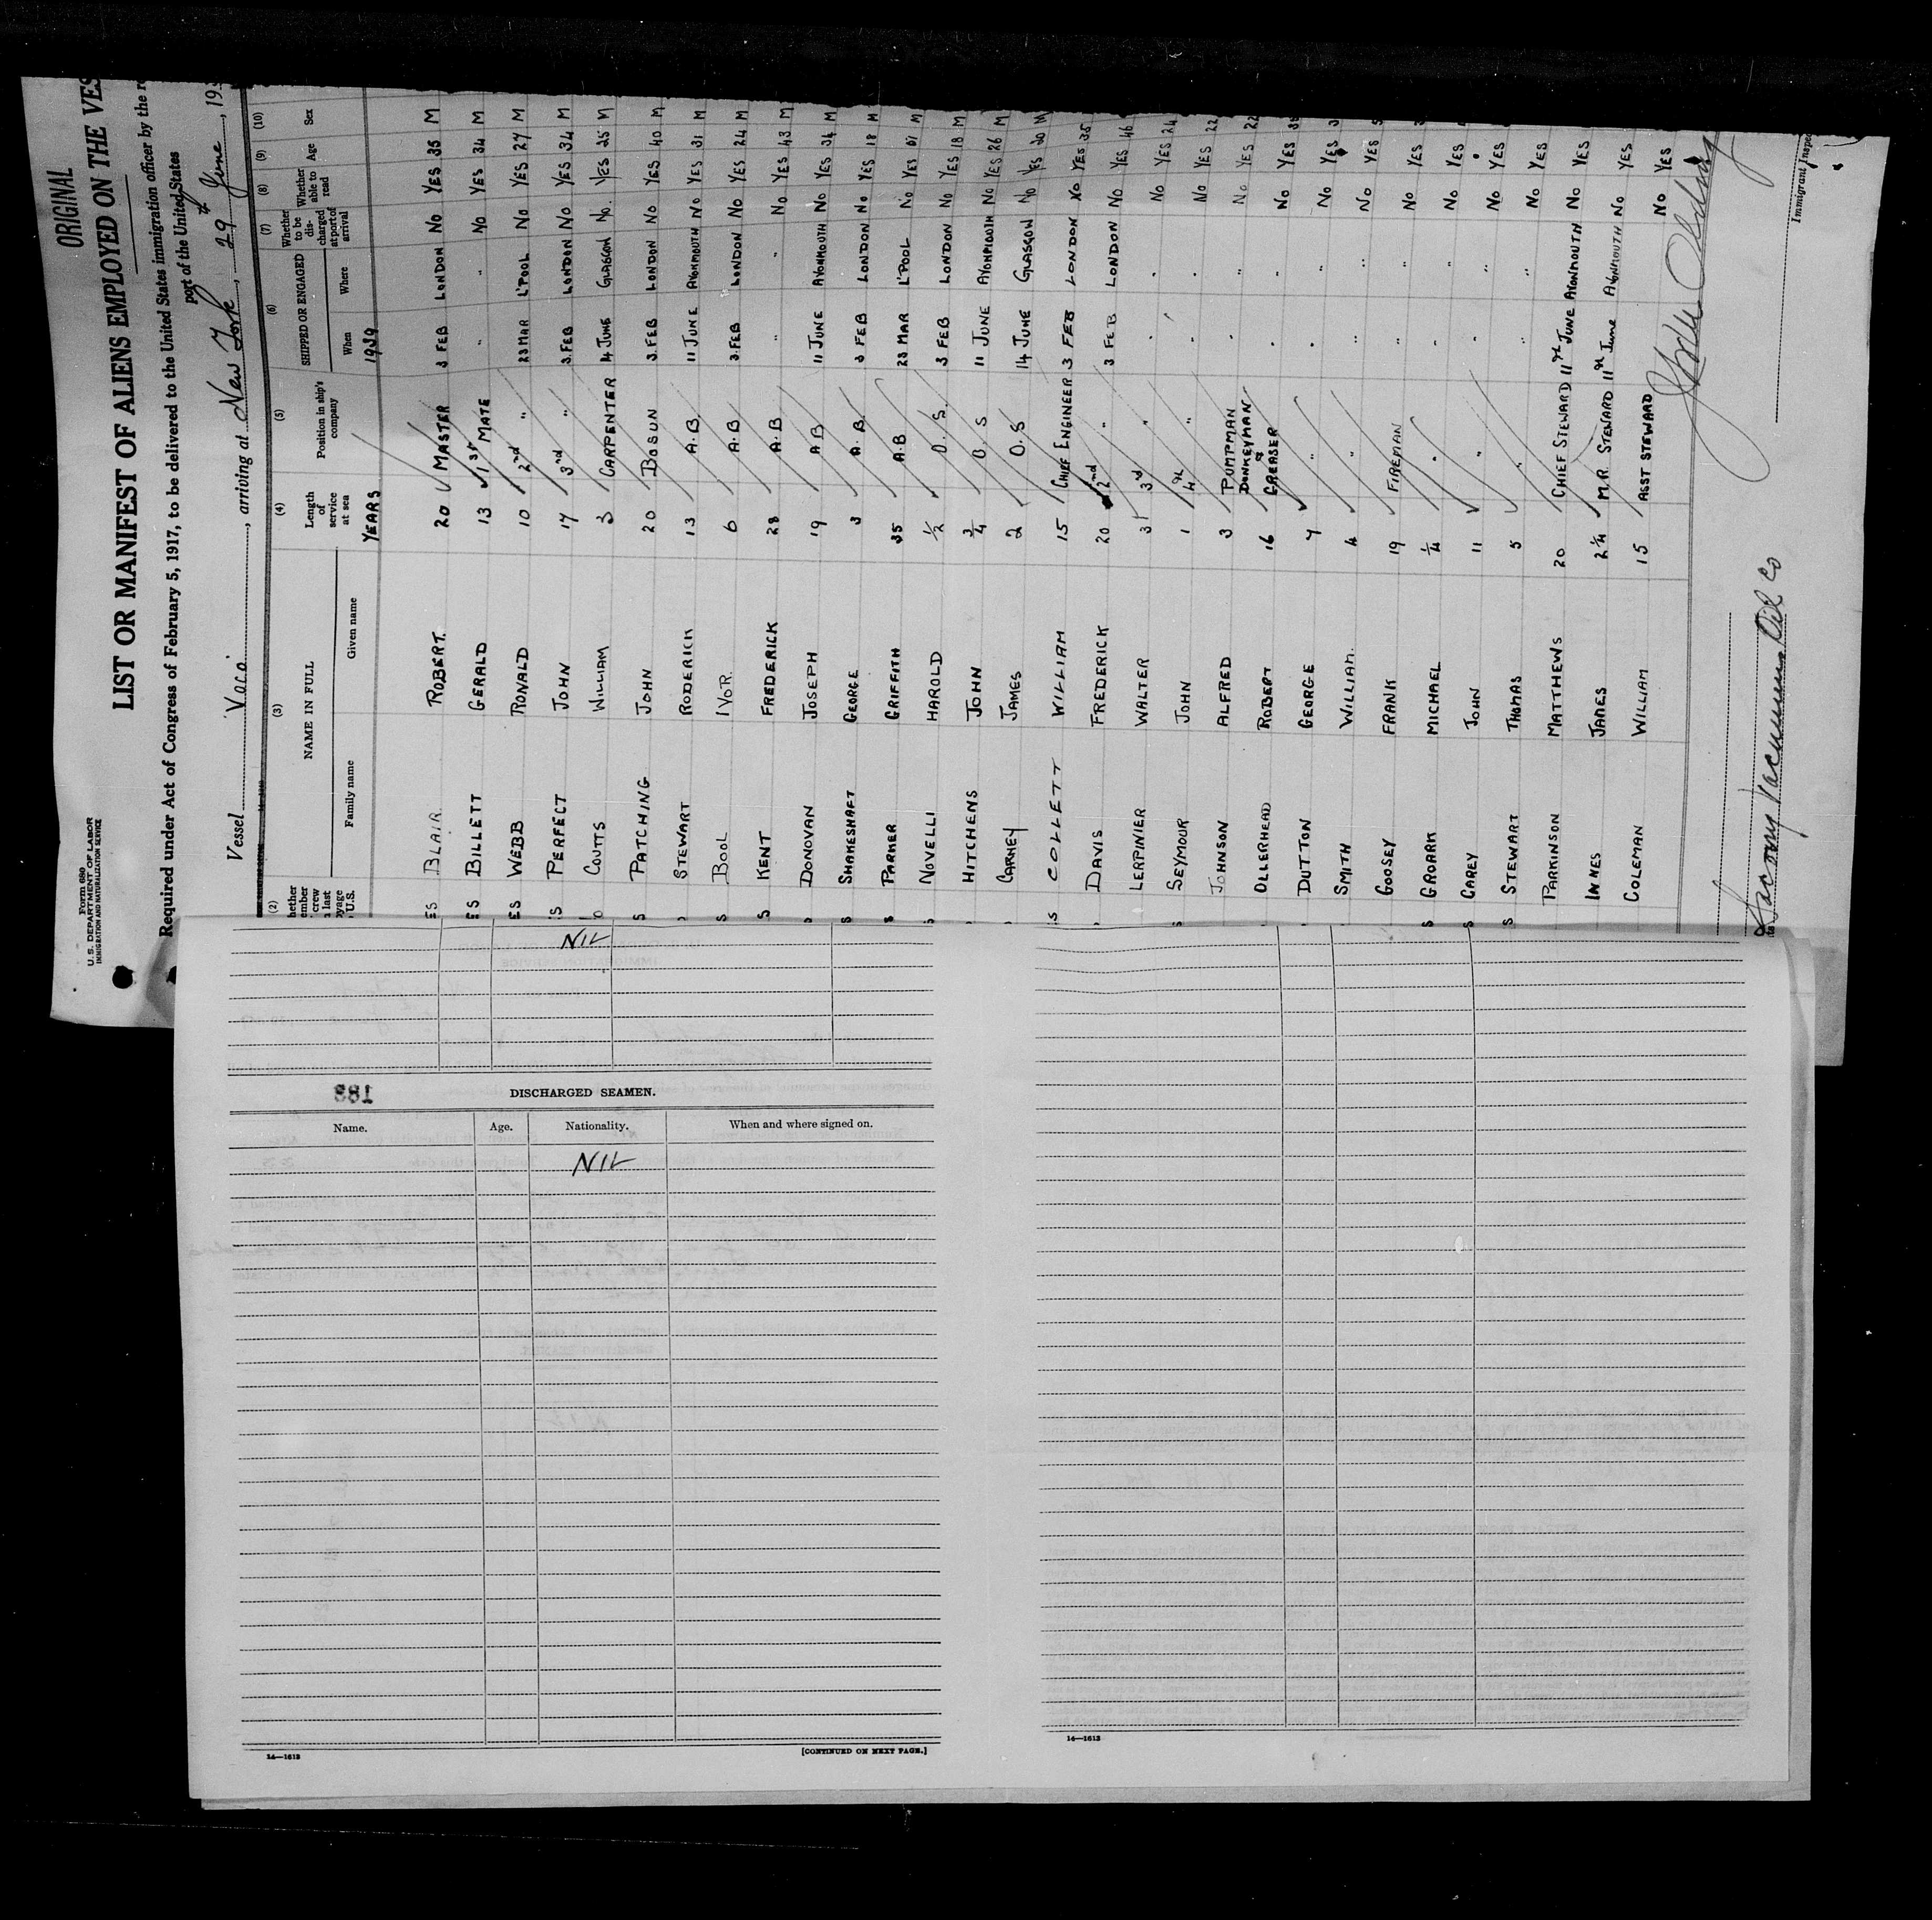 ORIGINAL
Form 680
U. S. DEPARTMENT OF LABOR
IMMIGRATION AND NATURALIZATION SERVICE
LIST OR MANIFEST OF ALIENS EMPLOYED ON THE VES
Required under Act of Congress of February 5, 1917, to be delivered to the United States immigration officer by the r
port of the United States
Vessel "Vaco", arriving at New York, 29th June, 193
(2) (3) (4) (5) (6) (7) (8) (9) (10)
NAME IN FULL
Family name Given name
Length of service at sea
Position in ship's company
SHIPPED OR ENGAGED
When Where
Whether to be discharged at port of arrival
Whether able to read
Age
Sex
YEARS 1939
ES BLAIR ROBERT. 20 MASTER 3 FEB LONDON No YES 35 M
ES BILLETT GERALD 13 1ST MATE " " No YES 34 M
ES WEBB RONALD 10 2nd " 23 MAR L'POOL No YES 27 M
ES PERFECT JOHN 17 3rd " 3. FEB LONDON No YES 34 M
o COUTTS WILLIAM 3 CARPENTER 14 JUNE GLASGOW No. YES 25 M
S PATCHING JOHN 20 BOSUN 3. FEB LONDON No YES 40 M
STEWART RODERICK 13 A.B 11 JUNE AVONMOUTH No YES 31 M
S BOOL IVOR. 6 A.B 3. FEB LONDON No YES 24 M
S KENT FREDERICK 28 A.B " " No YES 43 M
DONOVAN JOSEPH 19 A B 11 JUNE AVONMOUTH No YES 34 M
S SHAKESHAFT GEORGE 3 A. B. 3 FEB LONDON No YES 18 M
S PARKER GRIFFITH 35 A.B 23 MAR L'POOL No YES 61 M
S NOVELLI HAROLD ½ O. S. 3 FEB LONDON No YES 18 M
HITCHENS JOHN ¾ O. S 11 JUNE AVONMOUTH No YES 26 M
CARNEY JAMES 2 O. S 14 JUNE GLASGOW No YES 20 M
S COLLETT WILLIAM 15 CHIEF ENGINEER 3 FEB LONDON No YES 35
DAVIS FREDERICK 20 2nd " 3 FEB LONDON No YES 46
LERPINIER WALTER 3 3rd " " " No YES 24
S SEYMOUR JOHN 1 4th " " " No YES 22
JOHNSON ALFRED 3 PUMPMAN " " No YES 22
OLLERHEAD ROBERT 16 DONKEYMAN & GREASER " " No YES
DUTTON GEORGE 7 " " " No YES
SMITH WILLIAM. 4 " " " No YES
GOOSEY FRANK 19 FIREMAN " " No YES
S GROARK MICHAEL ¼ " " " No YES
S CAREY JOHN 11 " " " No YES
S STEWART THOMAS 5 " " " No YES
PARKINSON MATTHEWS 20 CHIEF STEWARD 11th June AVONMOUTH No YES
INNES JAMES 2¼ M.R. STEWARD 11th June AVONMOUTH No YES
COLEMAN WILLIAM 15 ASST STEWARD No YES
Socony Vacuum Oil Co
Immigrant Inspec
NIL
183
DISCHARGED SEAMEN.
Name. Age. Nationality. When and where signed on.
NIL
14—1613
[CONTINUED ON NEXT PAGE.]
14—1613